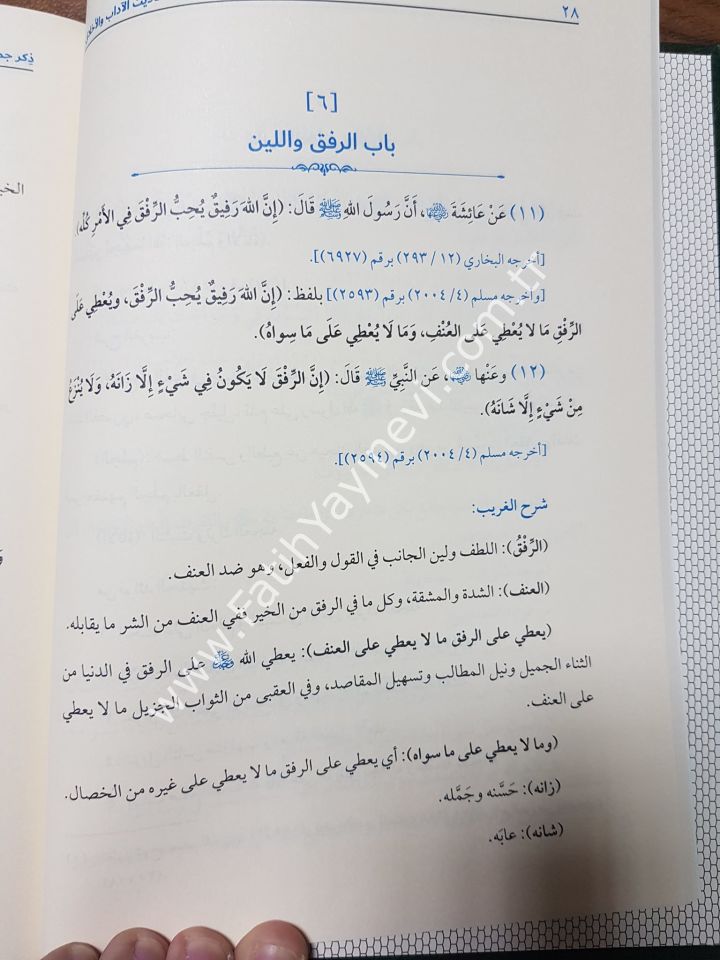 ٢٨
[٦]
باب الرفق واللين
(١١) عَنْ عَائِشَةَ ﵂، أَنَّ رَسُولَ اللهِ ﷺ قَالَ: (إِنَّ اللهَ رَفِيقٌ يُحِبُّ الرِّفْقَ فِي الأَمْرِ كُلِّه).
[أخرجه البخاري (١٢/ ٢٩٣) برقم (٦٩٢٧)].
[وأخرجه مسلم (٤/ ٢٠٠٤) برقم (٢٥٩٣)] بلفظ: (إِنَّ اللهَ رَفِيقٌ يُحِبُّ الرِّفْقَ، ويُعْطِي عَلَى
الرِّفْقِ مَا لا يُعْطِي عَلَى العُنْفِ، وَمَا لَا يُعْطِي عَلَى مَا سِواهُ).
(١٢) وعَنْها ﵂، عَن النَّبِيِّ ﷺ قَالَ: (إِنَّ الرِّفْقَ لَا يَكُونُ فِي شَيْءٍ إِلَّا زَانَهُ، وَلَا يُنْزَعُ
مِنْ شَيْءٍ إِلَّا شَانَهُ).
[أخرجه مسلم (٤/ ٢٠٠٤) برقم (٢٥٩٤)].
شرح الغريب:
(الرِّفْقُ): اللطف ولين الجانب في القول والفعل، وهو ضد العنف.
(العنف): الشدة والمشقة، وكل ما في الرفق من الخير ففي العنف من الشر ما يقابله.
(يعطي على الرفق ما لا يعطي على العنف): يعطي الله ﷻ على الرفق في الدنيا من
الثناء الجميل ونيل المطالب وتسهيل المقاصد، وفي العقبى من الثواب الجزيل ما لا يعطي
على العنف.
(وما لا يعطي على ما سواه): أي يعطي على الرفق ما لا يعطي على غيره من الخصال.
(زانه): حَسَّنه وجَمَّله.
(شانه): عابَه.
www.FatihYayinevi.com.tr